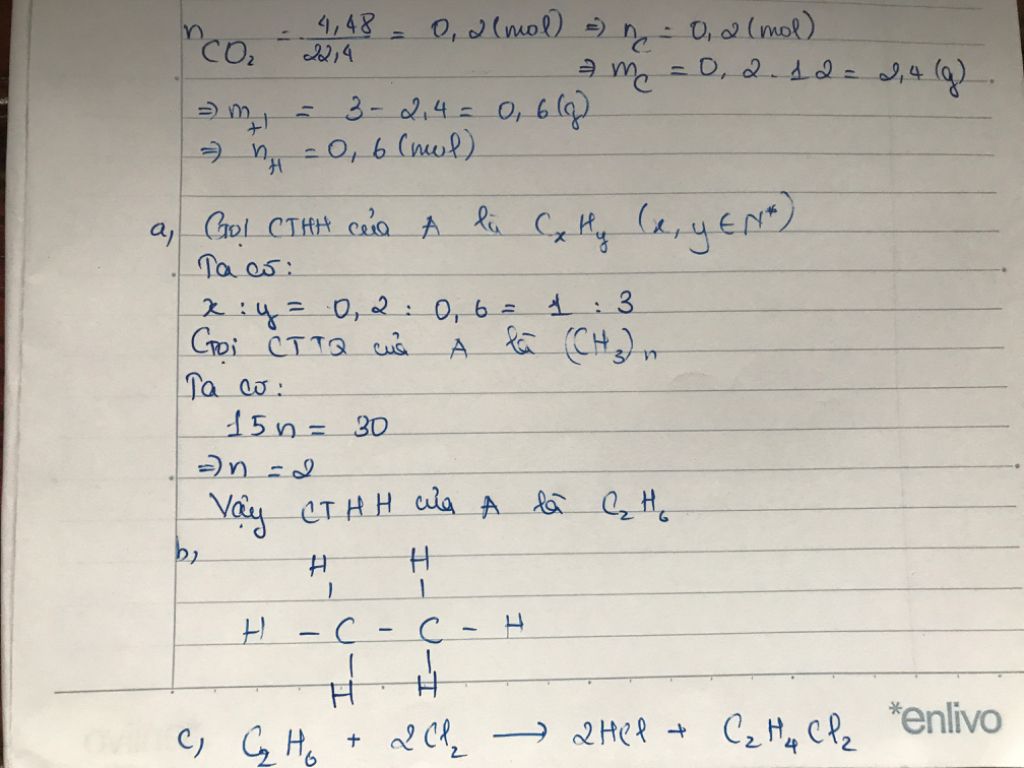 nCO₂ = 4,48/22,4 = 0,2(mol) ⇒ nC = 0,2(mol)
⇒ mC = 0,2.12 = 2,4(g)
⇒ mH = 3 - 2,4 = 0,6(g)
⇒ nH = 0,6(mol)
a, Gọi CTHH của A là CxHy (x, y ∈ N*)
Ta có:
x : y = 0,2 : 0,6 = 1 : 3
Gọi CTTQ của A là (CH₃)n
Ta có:
15n = 30
⇒ n = 2
Vậy CTHH của A là C₂H₆
b,
H H
H - C - C - H
H H
*enlivo
c, C₂H₆ + 2Cl₂ → 2HCl + C₂H₄Cl₂